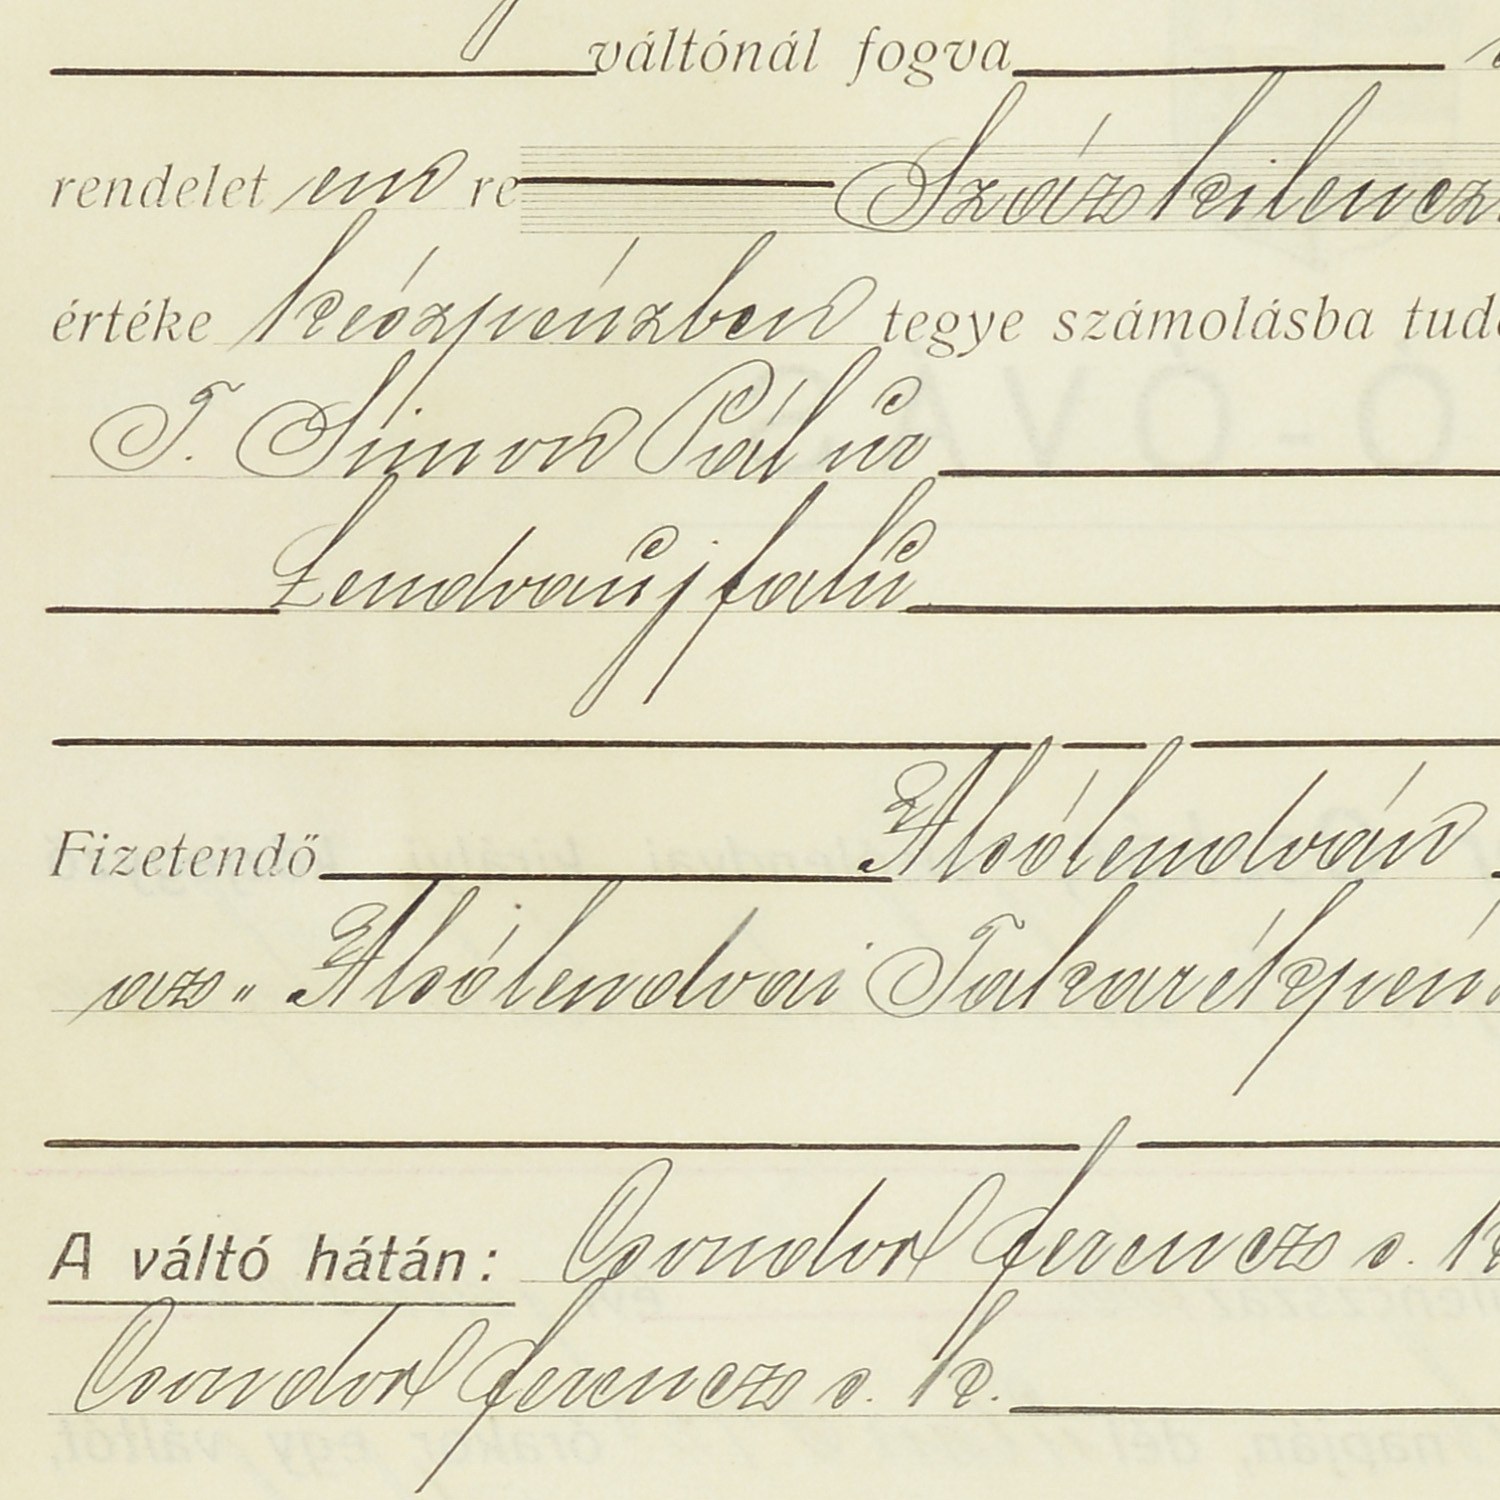 váltónál fogva
rendelet en re Százkilencz
értéke készpénzben tegye számolásba
T. Simon Pál úr
Lendvaújfalu
Fizetendő Alsólendván
az „Alsólendvai Takarékpén
A váltó hátán: Csondor Ferencz s. k
Csondor Ferencz s. k.